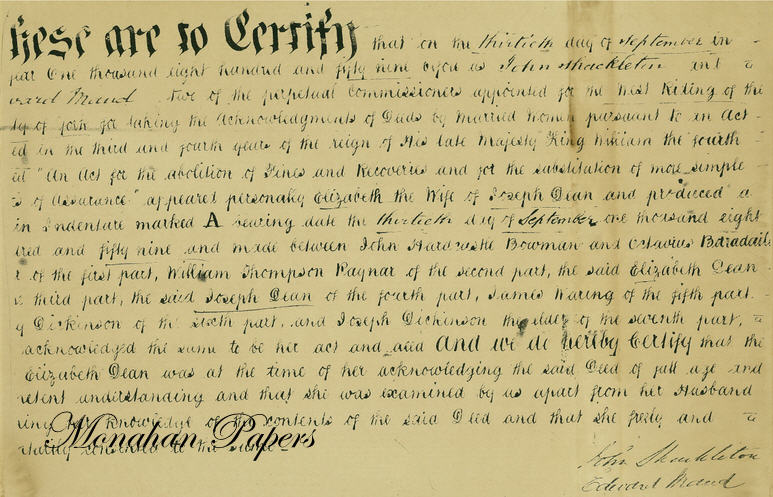 hese are to Certify that on the thirtieth day of September in
year One thousand eight hundred and fifty nine before us John Shackleton and
ward Maud two of the perpetual Commissioners appointed for the West Riding of the
ty of York for taking the Acknowledgments of Deeds by Married Women pursuant to an Act
ed in the third and fourth years of the reign of His late Majesty King William the fourth
ed "An Act for the abolition of Fines and Recoveries and for the substitution of more simple
s of Assurance" appeared personally Elizabeth the Wife of Joseph Dean and produced a
in Indenture marked A bearing date the thirtieth day of September one thousand eight
dred and fifty nine and made between John Hardcastle Bowman and Octavius
r of the first part, William Thompson Raynar of the second part, the said Elizabeth Dean
third part, the said Joseph Dean of the fourth part, James Waring of the fifth part
y Dickinson of the sixth part, and Joseph Dickinson the elder of the seventh part,
acknowledged the same to be her act and deed And we do hereby Certify that the
Elizabeth Dean was at the time of her acknowledging the said Deed of full age and
petent understanding and that she was examined by us apart from her Husband
ing her knowledge of the contents of the said Deed and that she freely and
ntarily consented to the same
Monahan Papers
John Shackleton
Edward Maud